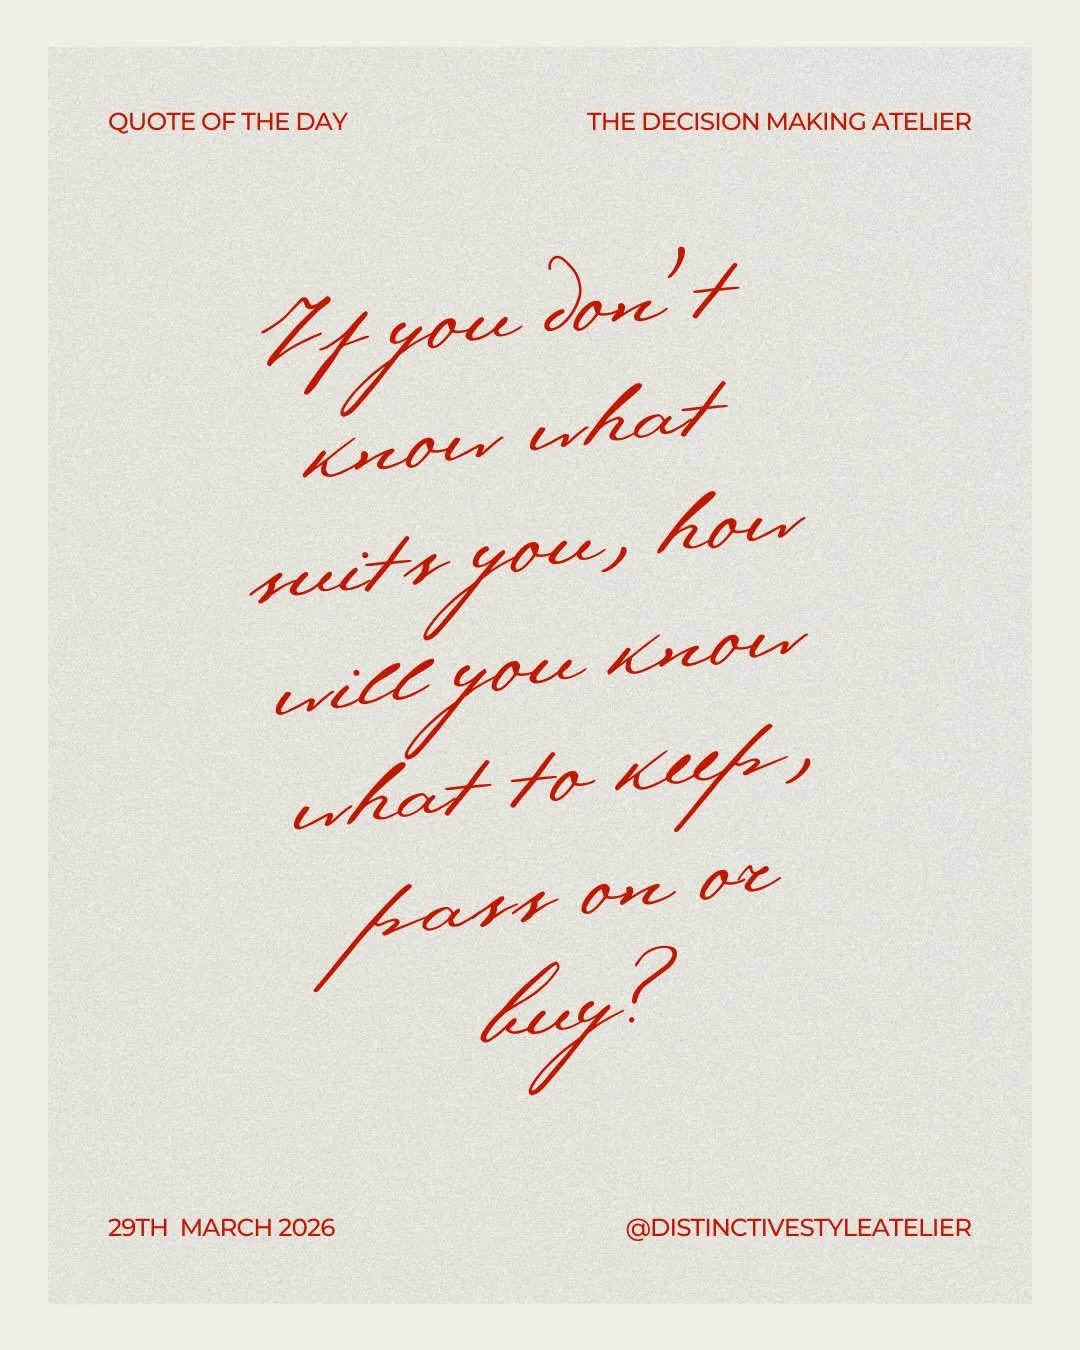 QUOTE OF THE DAY
THE DECISION MAKING ATELIER
If you don't
know what
suits you, how
will you know
what to keep,
pass on or
buy?
29TH MARCH 2026
@DISTINCTIVESTYLEATELIER